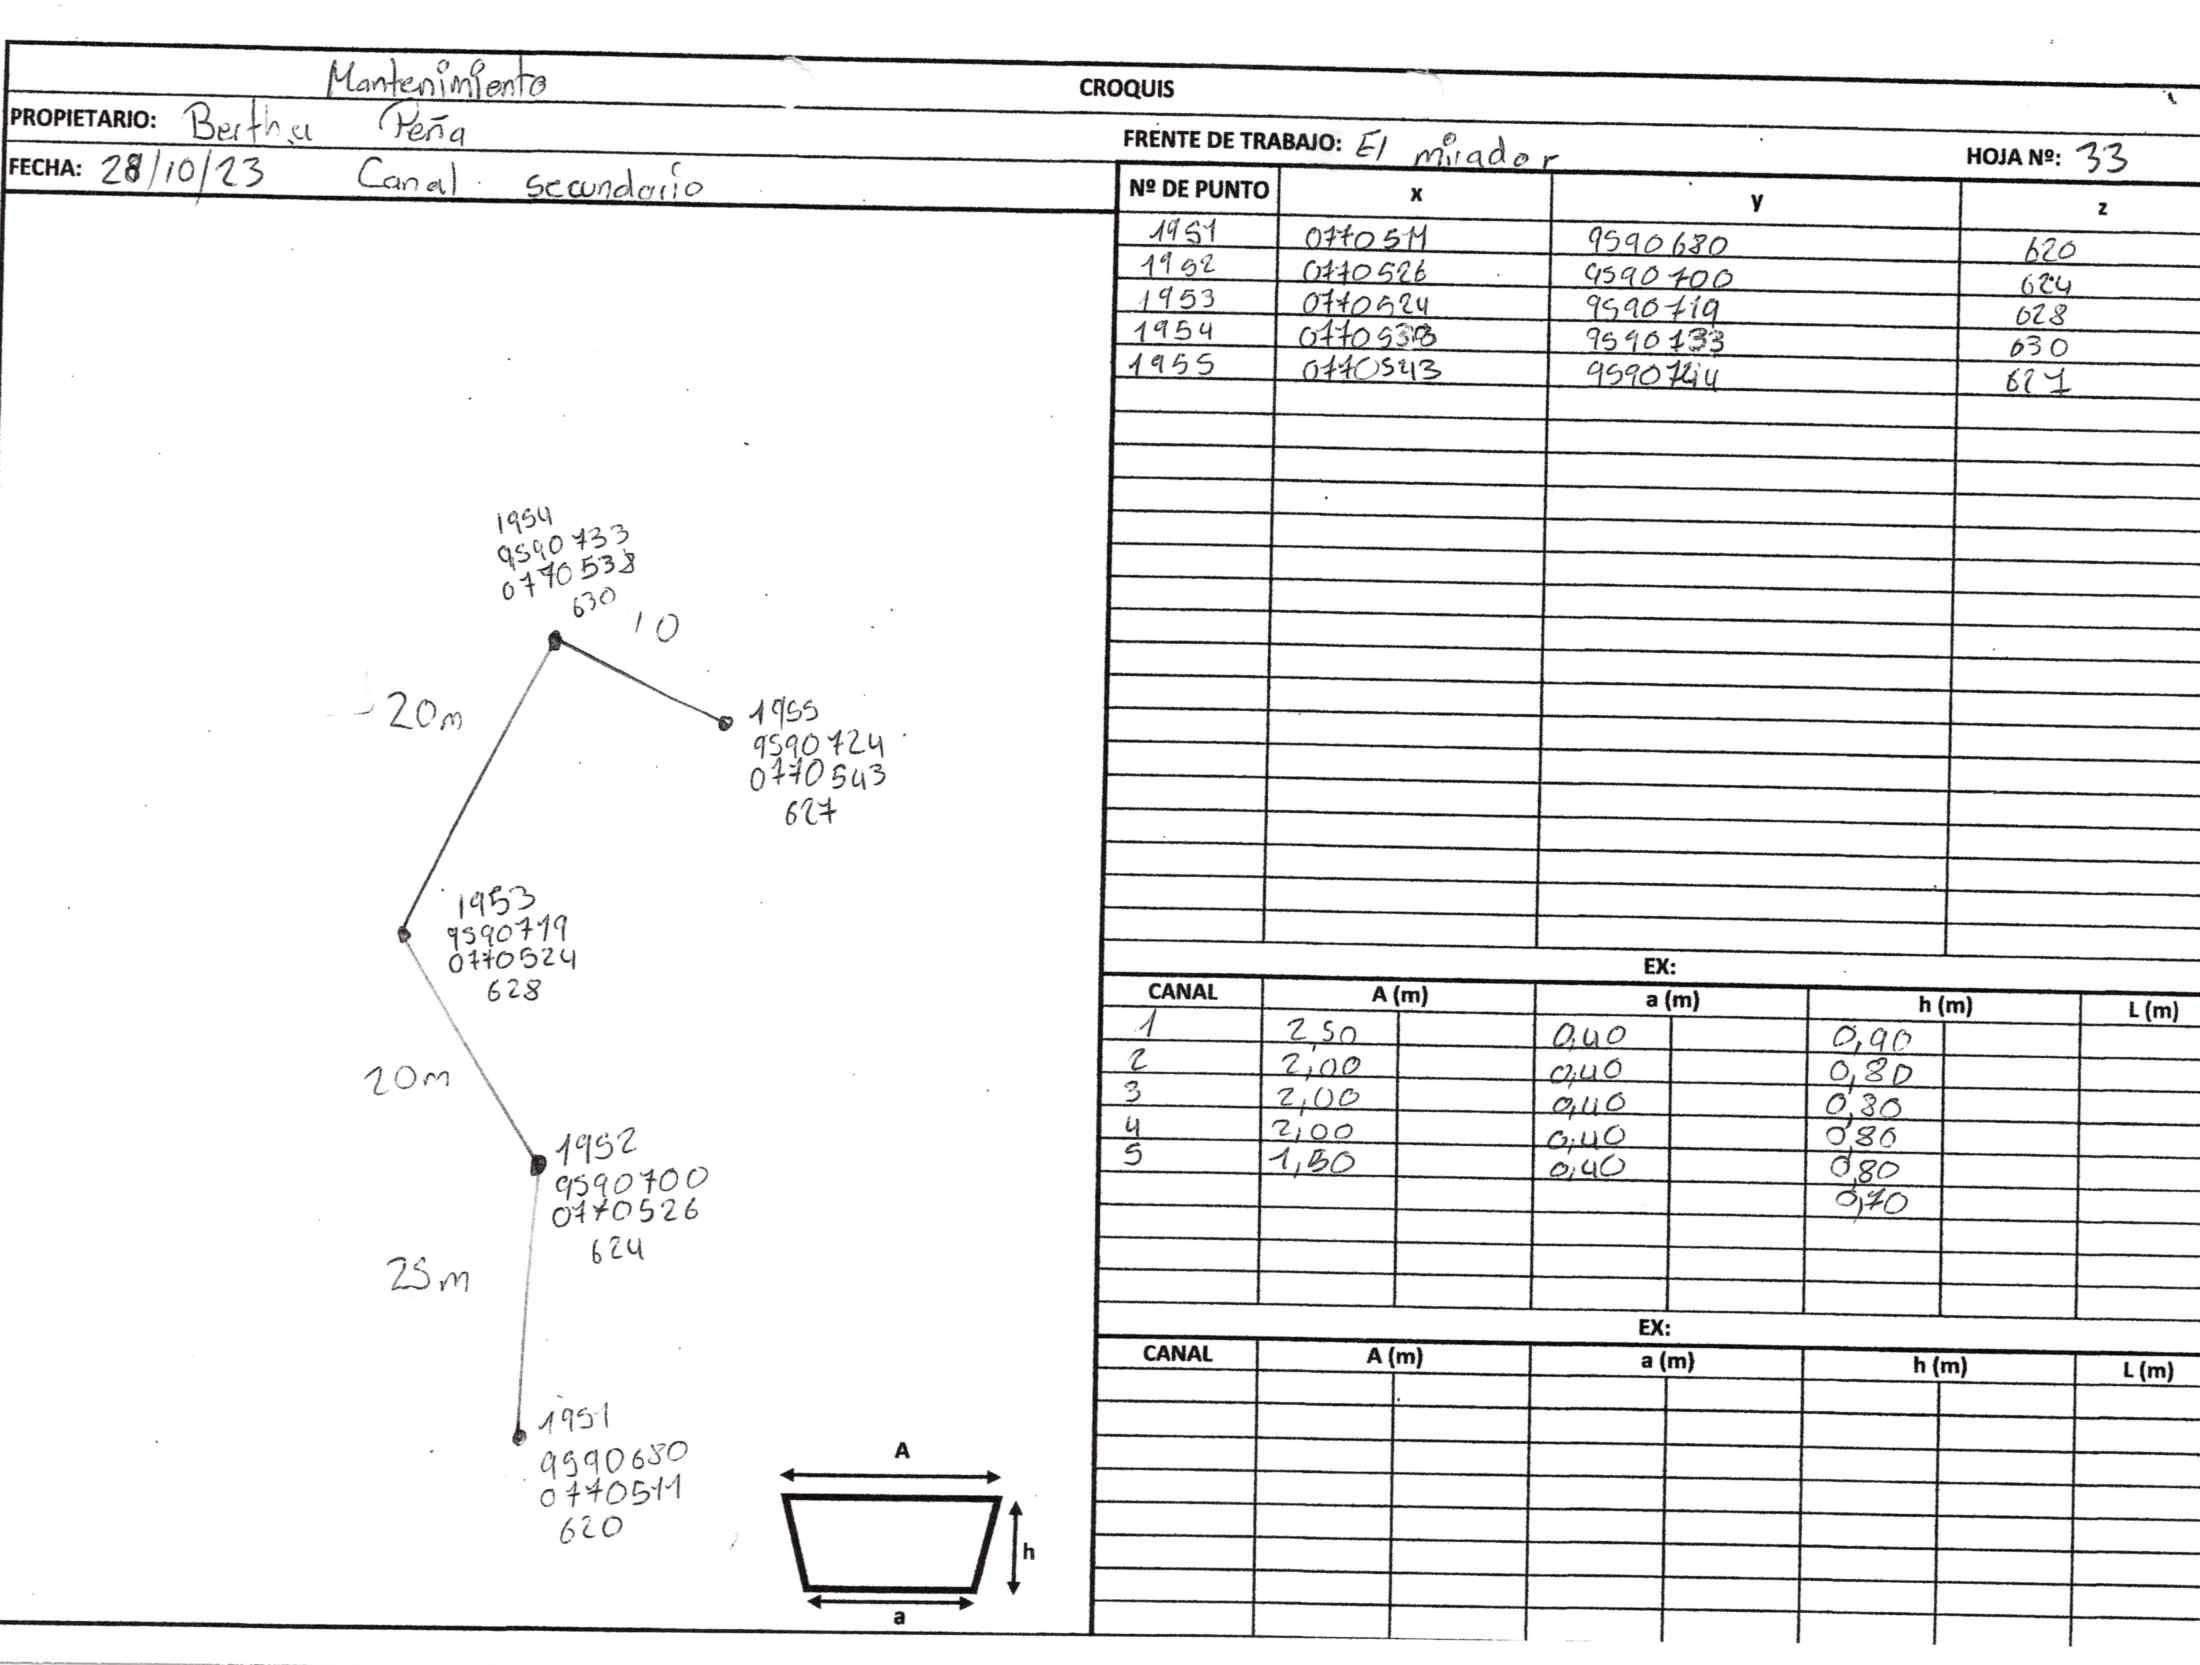 Mantenimiento
CROQUIS
PROPIETARIO: Bertha Peña
FRENTE DE TRABAJO: El mirador
HOJA Nº: 33
FECHA: 28/10/23 Canal secundario
Nº DE PUNTO x y z
1951 0770511 9590680 620
1952 0770526 9590700 624
1953 0770524 9590719 628
1954 0770538 9590733 630
1955 0770543 627
1954
9590733
0770538
630
10
20m
1955
9590724
0770543
627
1953
9590719
0770524
628
20m
1952
9590700
0770526
624
25m
1951
9590680
0770511
620
A
h
a
EX:
CANAL A (m) a (m) h (m) L (m)
1 2,50 0,40 0,90
2 2,00 0,40 0,80
3 2,00 0,40 0,80
4 2,00 0,40 0,80
5 1,50 0,40 0,80
0,70
EX:
CANAL A (m) a (m) h (m) L (m)